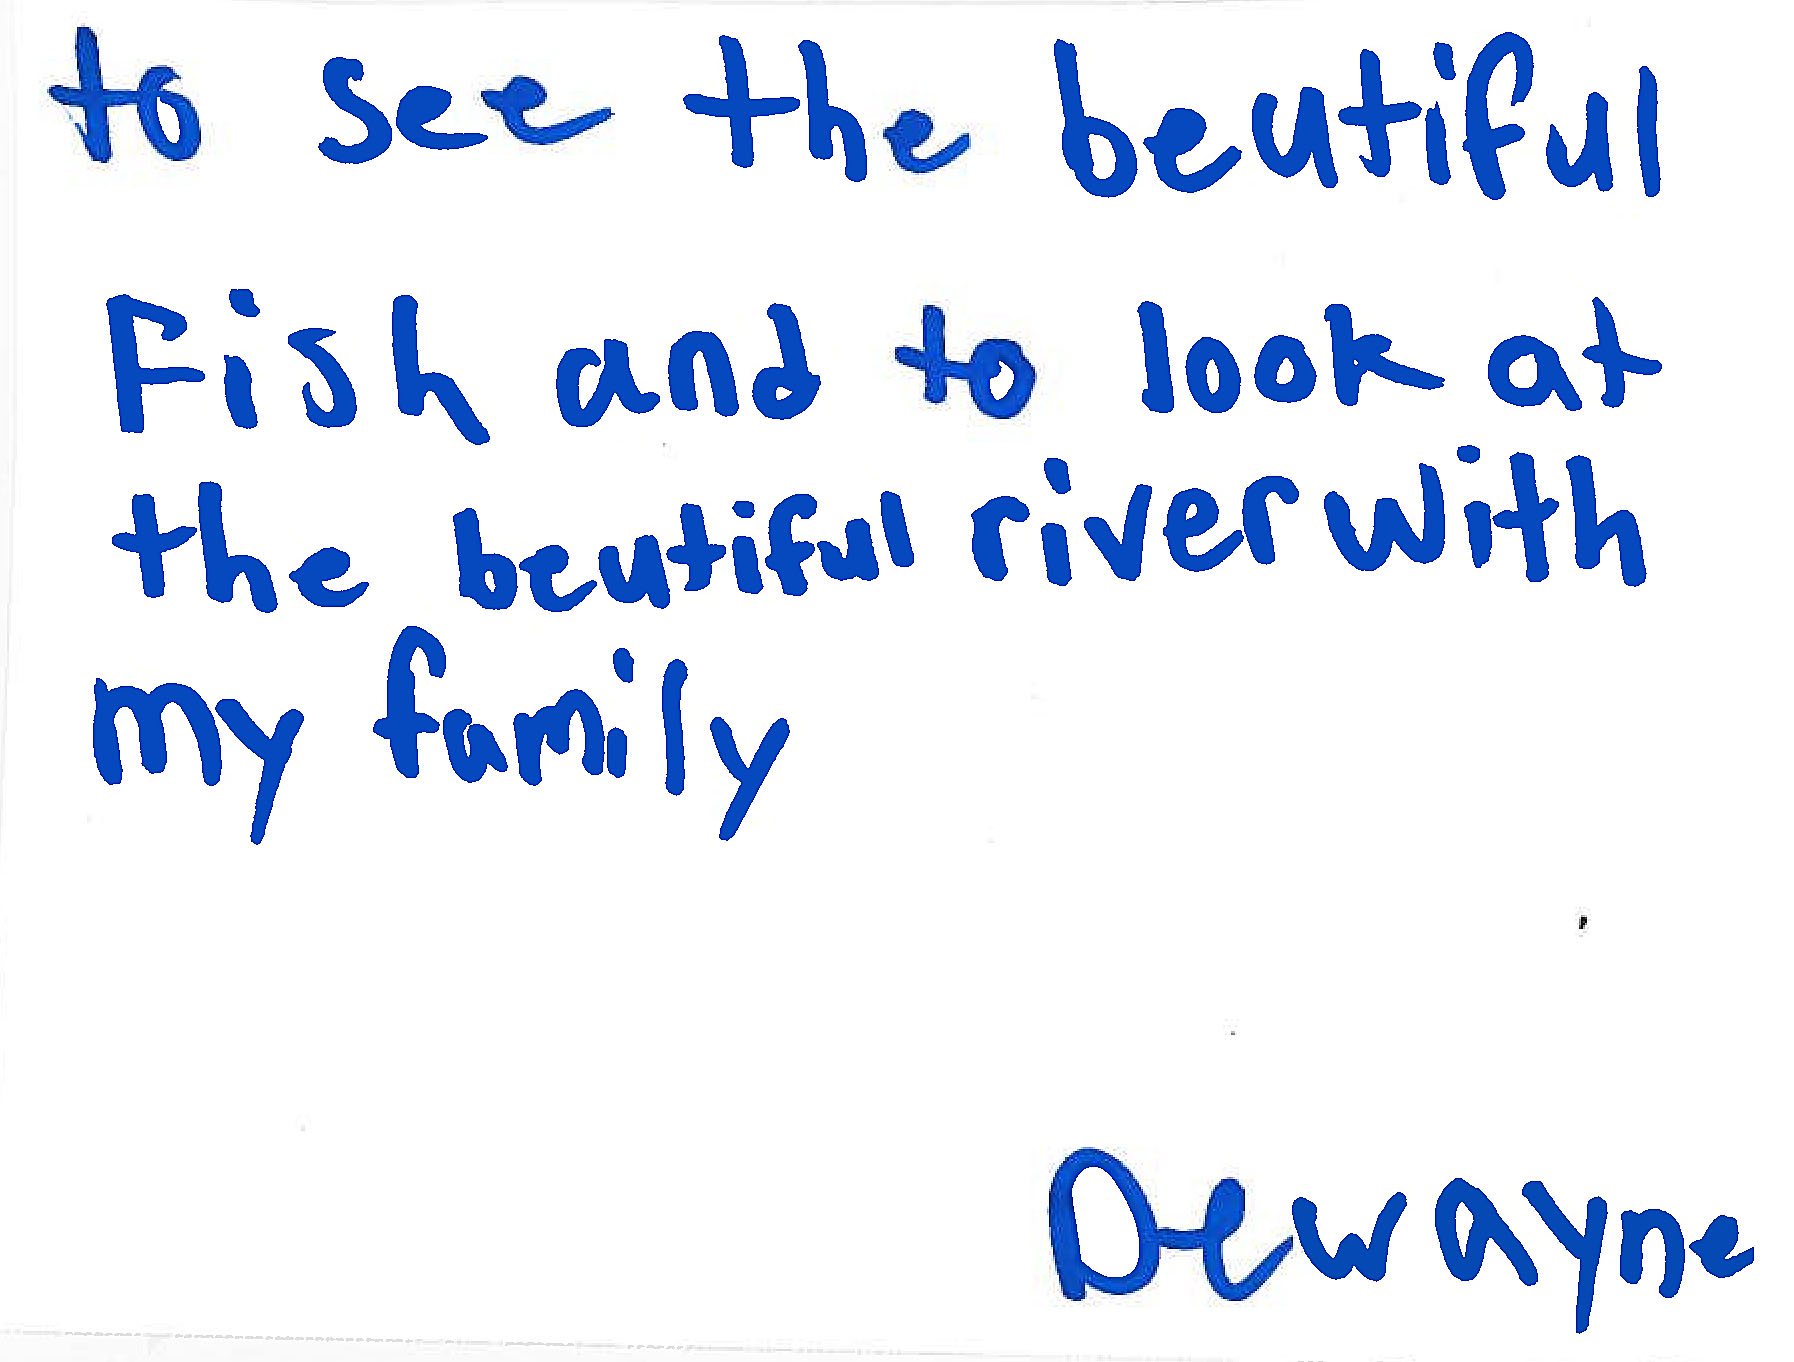 to see the beutiful
Fish and to look at
the beutiful river with
my family
Dewayne